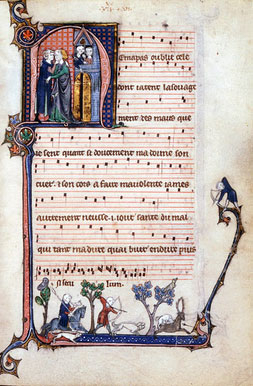 Nemapas oublie cele
dont iatent lasouage
ment des maus que
ie sent quant si doucement ma doune son
cuer. ⁊ son cors a faire mavolente iames
autrement neusse .i. iour sante du mal
qui tant madure quai bien endure puis
In secu lum.